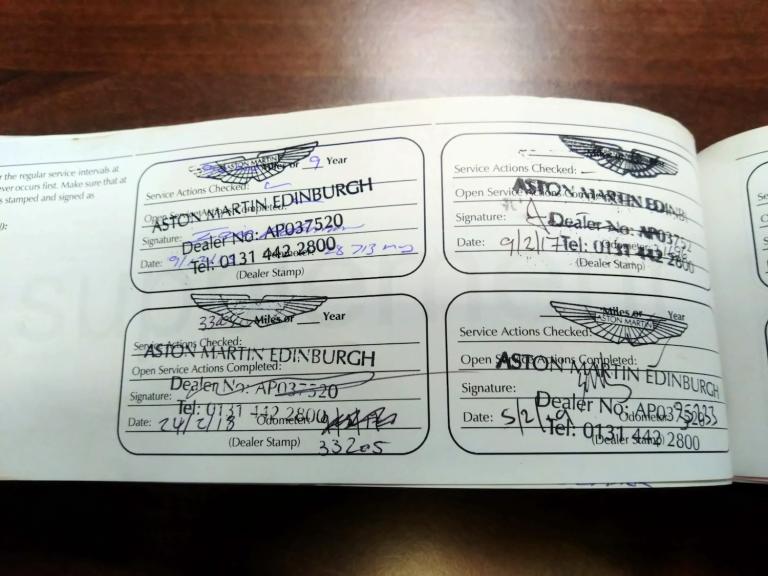 r the regular service intervals at
ever occurs first. Make sure that at
s stamped and signed as
):
ASTON MARTIN
Miles or 9 Year
Service Actions Checked:
Open Service Actions Completed:
ASTON MARTIN EDINBURGH
Signature:
Dealer No: AP037520
Date: 9/
Odometer: 28 713
Tel: 0131 442 2800
(Dealer Stamp)
Service Actions Checked:
Open Service Actions Completed:
ASTON MARTIN EDINB
Signature:
Dealer No: AP03752
Date: 9/2/17
Odometer:
Tel: 0131 442 2800
(Dealer Stamp)
Miles or Year
Service Actions Checked:
ASTON MARTIN EDINBURGH
Open Service Actions Completed:
Dealer No: AP037520
Signature:
Tel: 0131 442 2800
Date: 24/2/18
Odometer:
(Dealer Stamp)
33205
Miles or Year
ASTON MARTIN
Service Actions Checked:
Open Service Actions Completed:
ASTON MARTIN EDINBURGH
Signature:
Dealer No: AP037520
Date: 5/2/19
Odometer:
Tel: 0131 442 2800
(Dealer Stamp)